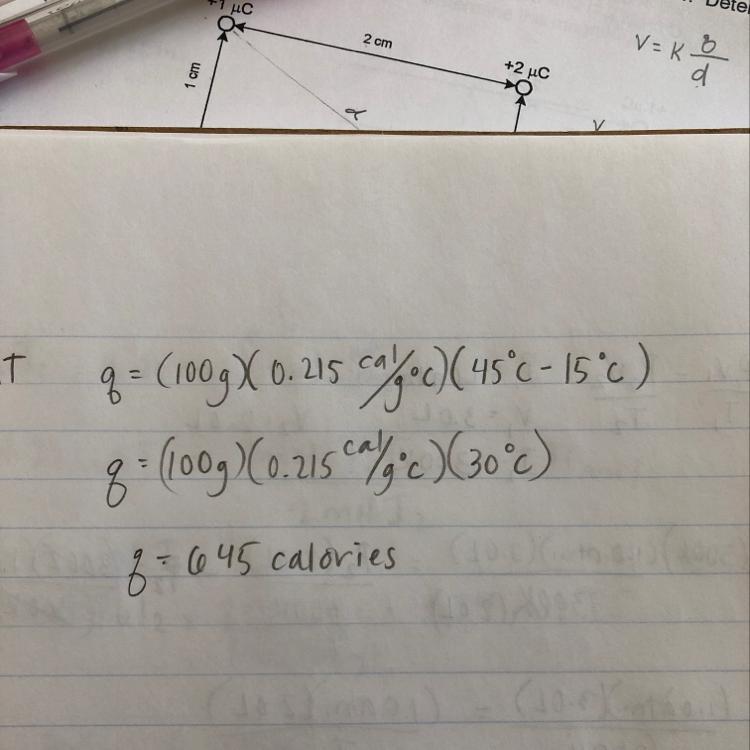 +1 μC
2 cm
+2 μC
1 cm
V = K q/d
V
T
q = (100g)(0.215 cal/g°C)(45°C - 15°C)
q = (100g)(0.215 cal/g°C)(30°C)
q = 645 calories